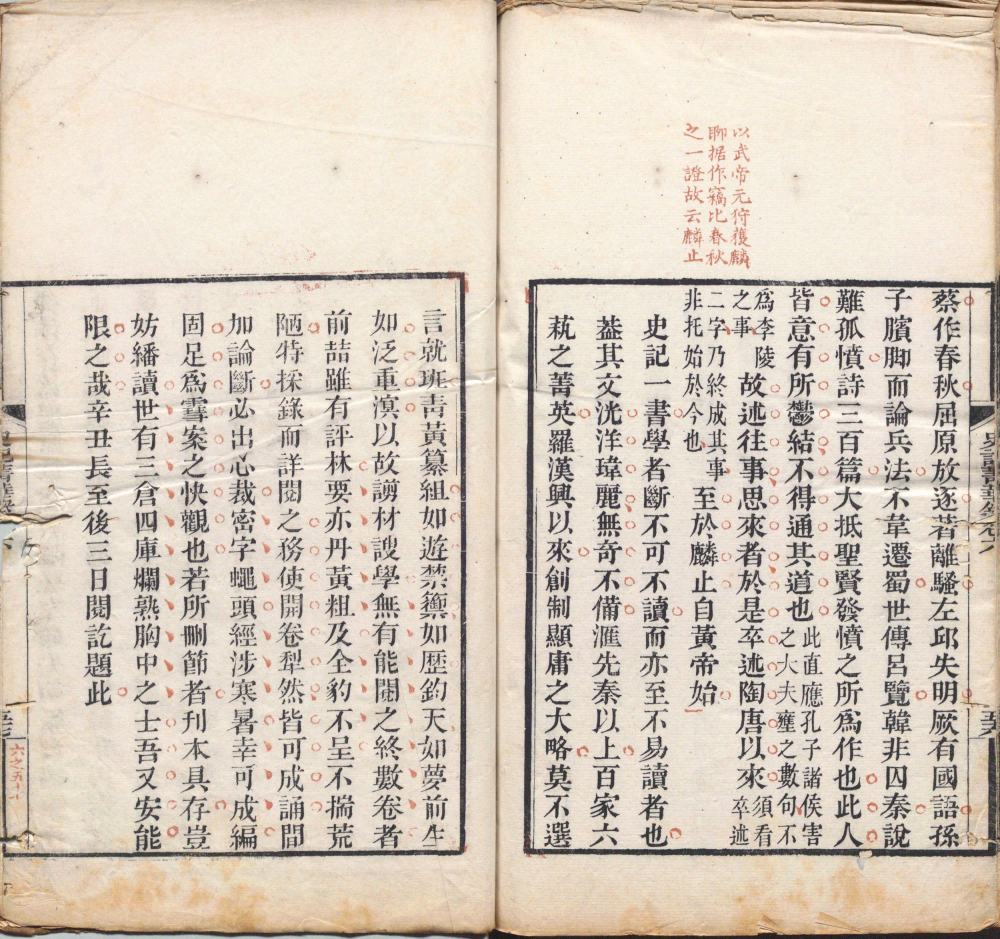 以武帝元狩獲麟
聊据作竊比春秋
之一證故云麟止
蔡作春秋屈原放逐著離騷左邱失明厥有國語孫
子臏脚而論兵法不韋遷蜀世傳呂覽韓非囚秦說
難孤憤詩三百篇大抵聖賢發憤之所爲作也此人
皆意有所鬱結不得通其道也此直應孔子諸侯害之大夫壅之數句不
爲李陵之事故述往事思來者於是卒述陶唐以來須看卒述
二字乃終成其事非托始於今也至於麟止自黃帝始
史記一書學者斷不可不讀而亦至不易讀者也
葢其文洸洋瑋麗無奇不備滙先秦以上百家六
蓺之菁英羅漢興以來創制顯庸之大略莫不選
言就班靑黃纂組如遊禁籞如歴鈞天如夢前生
如泛重溟以故謭材謏學無有能闚之終數卷者
前喆雖有評林要亦丹黃粗及全豹不呈不揣荒
陋特採錄而詳閱之務使開卷犁然皆可成誦間
加論斷必出心裁密字蠅頭經涉寒暑幸可成編
固足爲雪案之快觀也若所刪節者刊本具存豈
妨繙讀世有三倉四庫爛熟胸中之士吾又安能
限之哉辛丑長至後三日閱訖題此